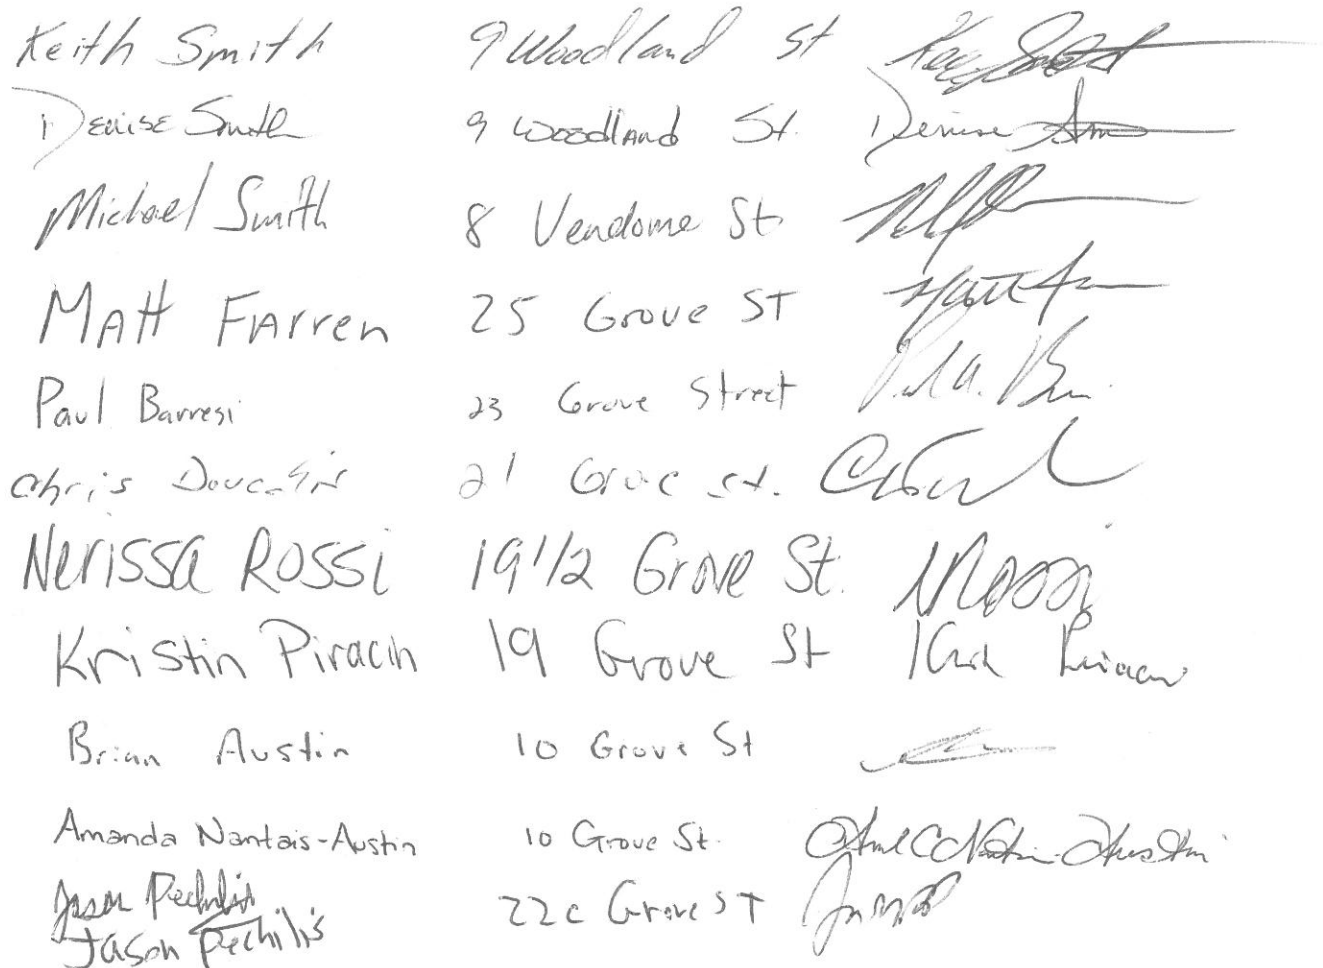 Keith Smith 9 Woodland St
Denise Smith 9 Woodland St. Denise
Michael Smith 8 Vendome St
Matt Farren 25 Grove ST Matt
Paul Barresi 23 Grove Street Paul A.
Chris 21 Grove st.
Nerissa Rossi 19 1/2 Grove St. N Rossi
Kristin Piracin 19 Grove St
Brian Austin 10 Grove St
Amanda Nantais-Austin 10 Grove St. Austin
Jason Pechilis 22c Grove ST
Jason Pechilis